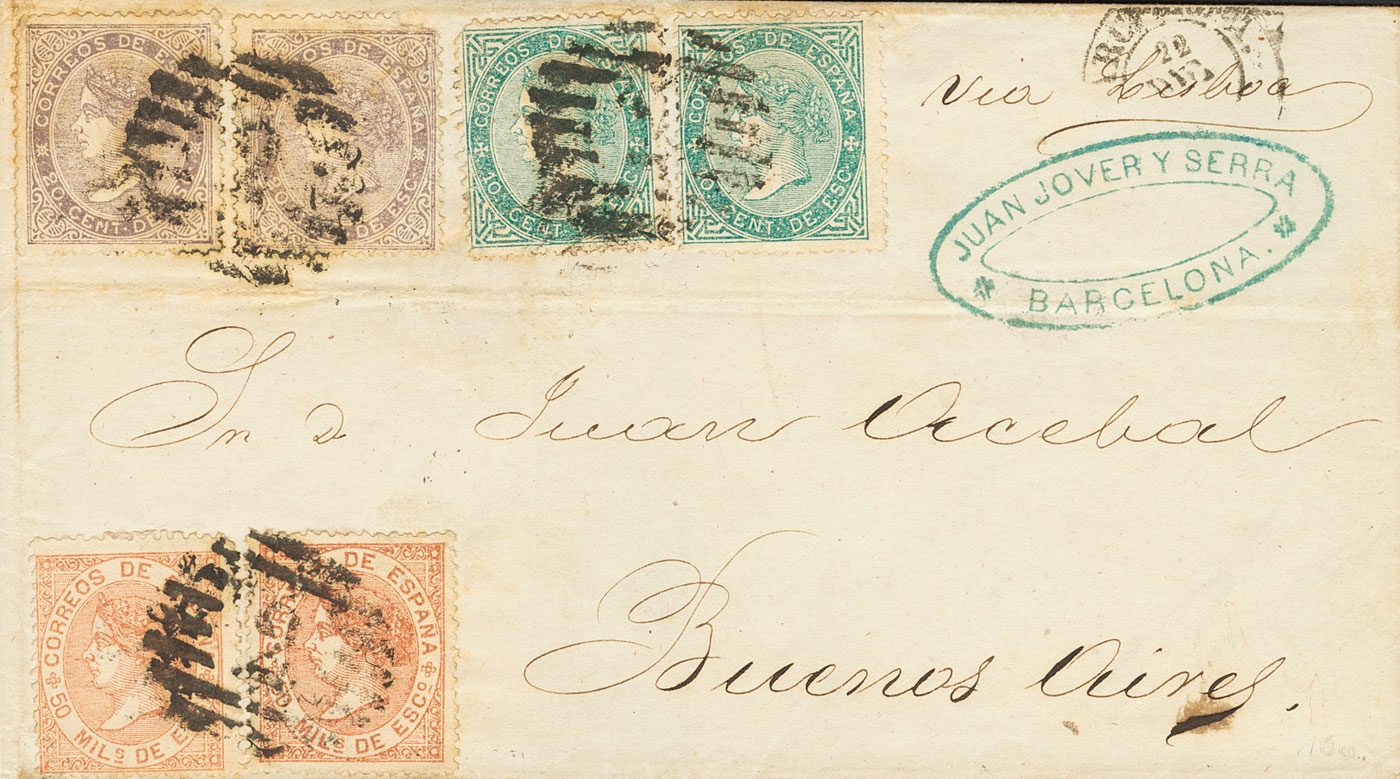 CORREOS DE ESPA
20 CENT. D ESC
OS DE ESPAÑA
DE ESC
CORREOS DE ESPAÑA
10 CENT C
OS DE ESPAÑA
CENT. DE ESCO
22
via Lisboa
JUAN JOVER Y SERRA
BARCELONA.
Sr. D. Juan Acebal
Buenos Aires.
CORREOS DE
50 MILS DE E
CORR DE ESPAÑA
MILS DE ESCO